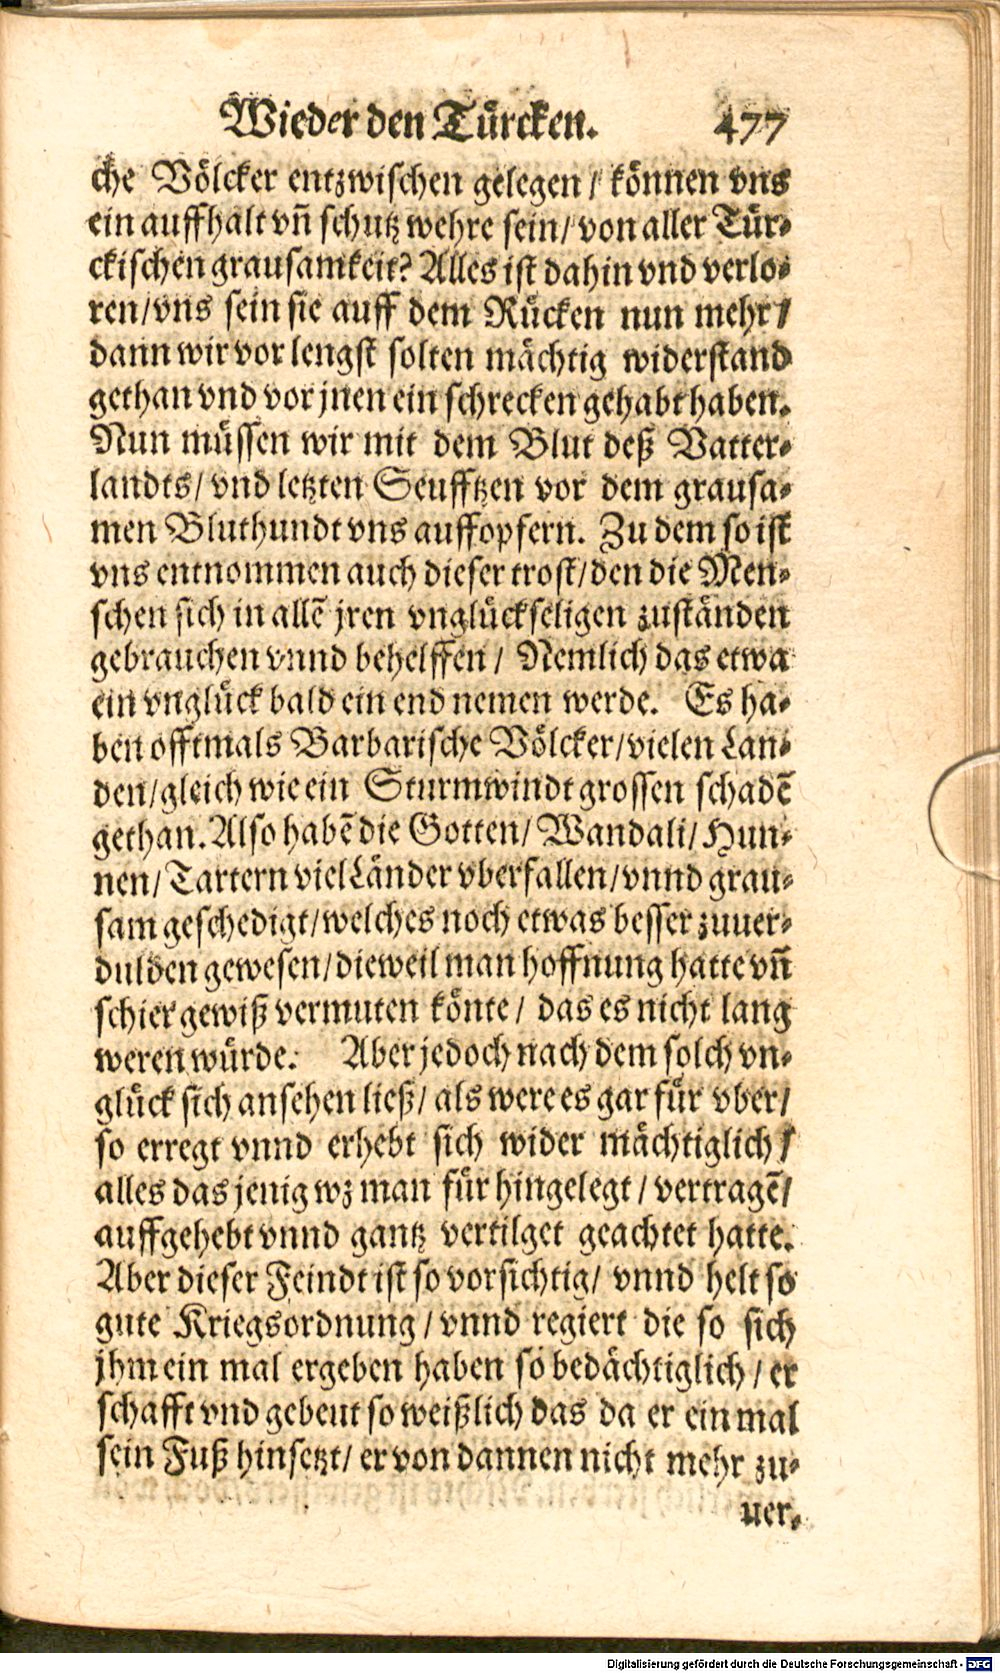 Wieder den Türcken. 477
che Völcker entzwischen gelegen / können vns
ein auffhalt vñ schutz wehre sein/ von aller Tür-
ckischen grausamkeit? Alles ist dahin vnd verlo-
ren/vns sein sie auff dem Rücken nun mehr/
dann wir vor lengst solten mächtig widerstand
gethan vnd vor jnen ein schrecken gehabt haben.
Nun müssen wir mit dem Blut deß Vatter-
landts/ vnd letzten Seufftzen vor dem grausa-
men Bluthundt vns auffopfern. Zu dem so ist
vns entnommen auch dieser trost/den die Men-
schen sich in allẽ jren vnglückseligen zuständen
gebrauchen vnnd behelffen / Nemlich das etwa
ein vnglück bald ein end nemen werde. Es ha-
ben offtmals Barbarische Völcker/vielen Lan-
den/gleich wie ein Sturmwindt grossen schadẽ
gethan. Also habẽ die Gotten/ Wandali/ Hun-
nen/ Tartern viel Länder vberfallen/vnnd grau-
sam geschedigt/welches noch etwas besser zuuer-
dulden gewesen/dieweil man hoffnung hatte vñ
schier gewiß vermuten könte / das es nicht lang
weren würde. Aber jedoch nach dem solch vn-
glück sich ansehen ließ/ als were es gar für vber/
so erregt vnnd erhebt sich wider mächtiglich/
alles das jenig wz man für hingelegt / vertragẽ/
auffgehebt vnnd gantz vertilget geachtet hatte.
Aber dieser Feindt ist so vorsichtig/ vnnd helt so
gute Kriegsordnung / vnnd regiert die so sich
jhm ein mal ergeben haben so bedächtiglich / er
schafft vnd gebeut so weißlich das da er ein mal
sein Fuß hinsetzt/ er von dannen nicht mehr zu-
uer-
Digitalisierung gefördert durch die Deutsche Forschungsgemeinschaft - DFG